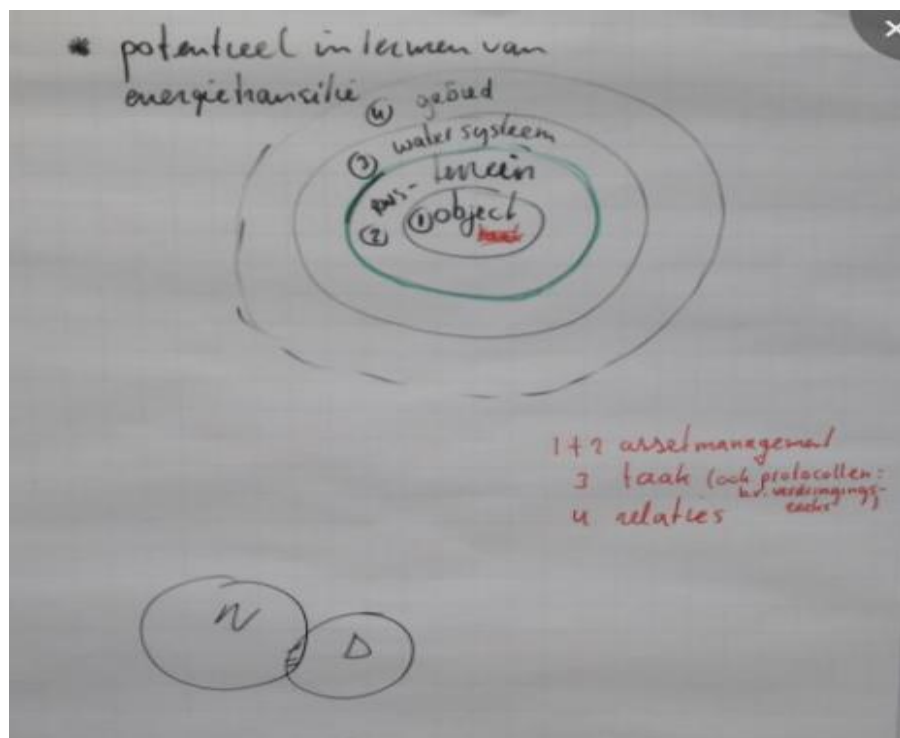 * potentieel in termen van
energietransitie
④ gebied
③ watersysteem
② RWS-terrein
① object
1+2 assetmanagement
3 taak (ook protocollen:
bv. verdringings-
reeks)
4 relaties
N
D